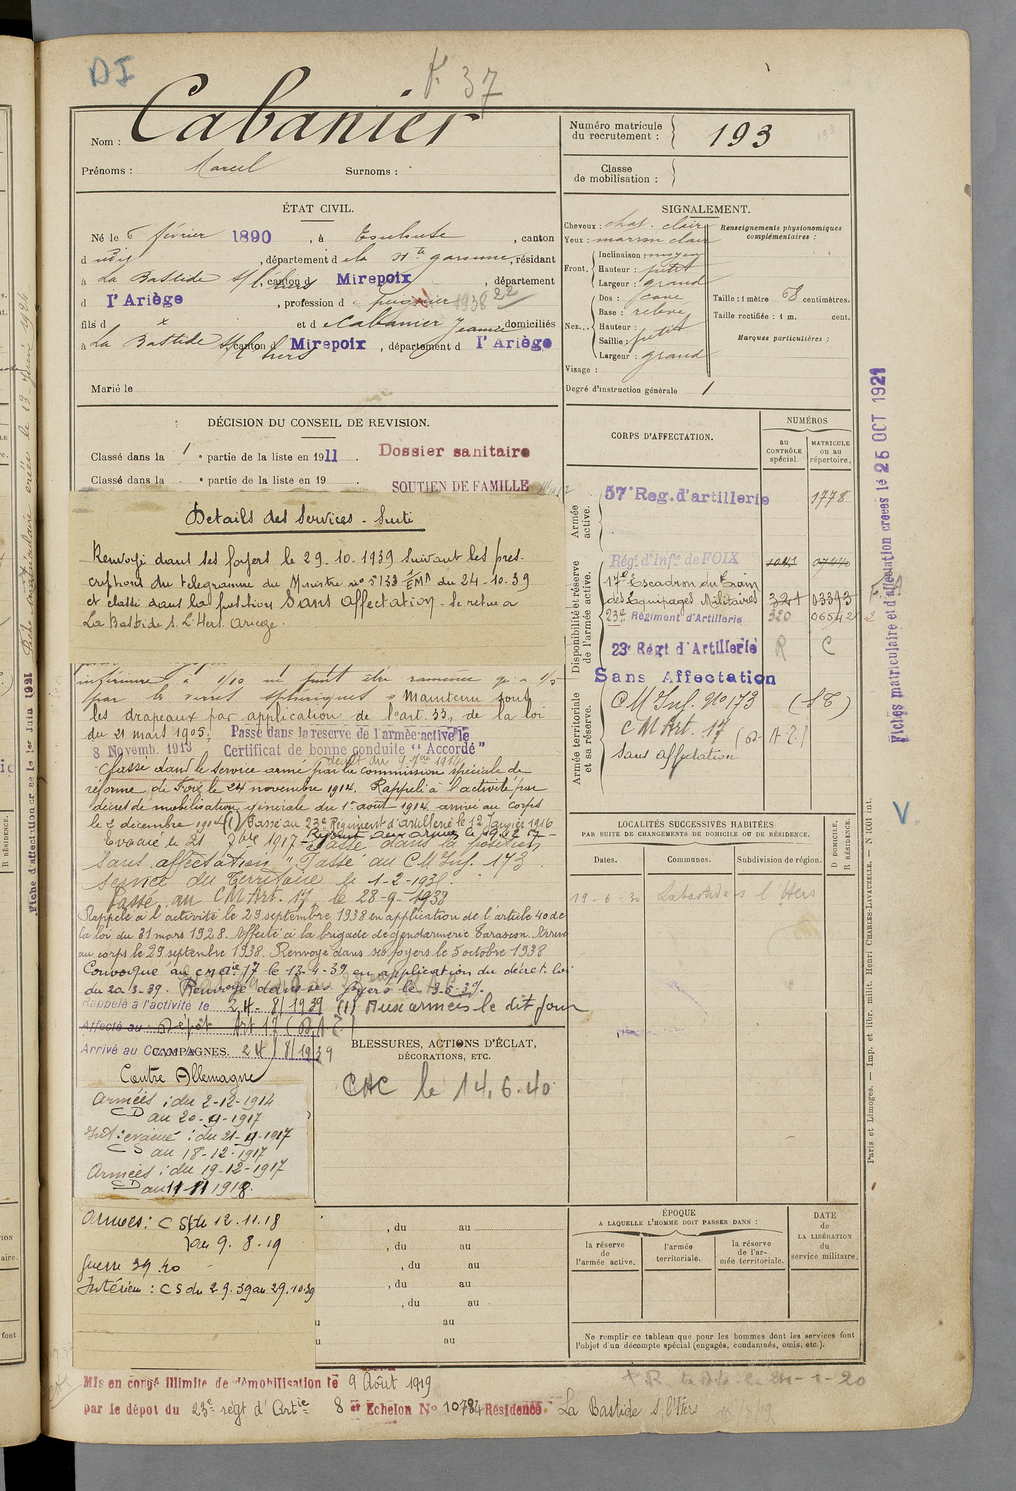 DI
F. 37
Nom : Cabanier
Prénoms : Marcel Surnoms :
Numéro matricule du recrutement : 193
Classe de mobilisation :
ÉTAT CIVIL.
Né le 6 février 1890, à Toulouse, canton
d udij, département d e la Hte garonne, résidant
à La Bastide s/l'hers canton d Mirepoix, département
d l'Ariège, profession d
fils d x et d e Cabanier Jeanne domiciliés
à La Bastide s/l hers canton d Mirepoix, département d l'Ariège
Marié le
SIGNALEMENT.
Cheveux : chat. clair
Yeux : marron clair
Front. Inclinaison : moyen
Hauteur : petit
Largeur : grand
Nez... Dos : cave
Base : relevé
Hauteur : petit
Saillie : petit
Largeur : grand
Visage :
Renseignements physionomiques complémentaires :
Taille : 1 mètre 68 centimètres.
Taille rectifiée : 1 m. cent.
Marques particulières :
Degré d'instruction générale 1
DÉCISION DU CONSEIL DE REVISION.
Classé dans la 1e partie de la liste en 1911. Dossier sanitaire
Classé dans la e partie de la liste en 19 SOUTIEN DE FAMILLE
Détails des Services - Suite
Renvoyé dans ses foyers le 29.10.1939 suivant les pres-
criptions du télégramme du Ministre no 5133 1/EMA du 24-10-39
et classé dans la position Sans affectation. Se retire a
La Bastide s. L'Hers Ariege.
inférieure à 1/10 ne peut être ramenée qu'à 1/5
par les verres sphériques " Maintenu sous
les drapeaux par application de l'art. 33, de la loi
du 21 mars 1905. Passé dans la réserve de l'armée active le
8 Novemb. 1913 Certificat de bonne conduite "Accordé"
décret du 9 7bre 1914
Classé dans le service armé par la commission spéciale de
réforme de Foix le 24 novembre 1914. Rappelé à l'activité par
décret de mobilisation générale du 1er août 1914. arrivé au corps
le 2 décembre 1914 (1) Passé au 23e Régiment d'artillerie le 12 Janvier 1916
Evacué le 21 9bre 1917 - Rejoint aux armées le 19-12-17 -
Passé dans la position
"Sans affectation" Passé au C M Inf. 173
Service du Territoire le 1-2-1931.
Passé au CM Art. 17 le 28-9-1938
Rappelé à l'activité le 29 septembre 1938 en application de l'article 40 de
la loi du 31 mars 1928. Affecté à la brigade de Gendarmerie Tarascon. Arrivé
au corps le 29 septembre 1938. Renvoyé dans ses foyers le 5 octobre 1938
Convoqué au CM Aie 17 le 13-4-39 en application du décret loi
du 20-3-39. Renvoyé dans ses foyers le 3-5-39.
Rappelé à l'activité le 24-8/1939 (1) Aux armées le dit jour
Affecté au : Dépôt Art 17 (B.A.T.)
Arrivé au Corps le 24/8/1939
CAMPAGNES.
Contre Allemagne
Armées : du 2-12-1914
CD au 20-11-1917
Int : évacué : du 21-11-1917
CS au 18-12-1917
Armées : du 19-12-1917
CD au 11-11-1918.
Armées : CS du 12.11.18
au 9.8.19
guerre 39.40
Intérieur : CS du 2.9.39 au 29.10.39
BLESSURES, ACTIONS D'ÉCLAT,
DÉCORATIONS, ETC.
CAC le 14.6.40
, du au
, du au
, du au
, du au
, du au
u au
u au
CORPS D'AFFECTATION.
NUMÉROS
au contrôle spécial.
MATRICULE ou au répertoire.
Armée active.
57e Reg. d'artillerie 1778
Disponibilité et réserve de l'armée active.
Régt d'Infie de FOIX
17e Escadron du Train
des Equipages Militaires 321 03393
23e Régiment d'Artillerie 320 06542
23e Régt d'Artillerie R C
Sans Affectation
Armée territoriale et sa réserve.
CM Inf. no 173 (ST)
CM Art. 17 (B.A.T.)
Sans affectation
LOCALITÉS SUCCESSIVES HABITÉES
PAR SUITE DE CHANGEMENTS DE DOMICILE OU DE RÉSIDENCE.
Dates. Communes. Subdivision de région. D DOMICILE, R RÉSIDENCE.
19-6-30 Labastide s l'Hers
ÉPOQUE
A LAQUELLE L'HOMME DOIT PASSER DANS :
la réserve de l'armée active.
l'armée territoriale.
la réserve de l'armée territoriale.
DATE de LA LIBÉRATION du service militaire.
Ne remplir ce tableau que pour les hommes dont les services font
l'objet d'un décompte spécial (engagés, condamnés, omis, etc.).
Mis en congé illimité de démobilisation le 9 Août 1919
par le dépôt du 23e régt d'Artie 8e Echelon No 10784 Résidence La Bastide s/l'Hers
Fiches matriculaire et d'affectation créées le 25 OCT 1921
V.
Paris et Limoges. — Imp. et libr. milit. Henri CHARLES-LAVAUZELLE. — N 1001 int.
Fiche d'affectation créée le 1er Juin 1921
R RÉSIDENCE.